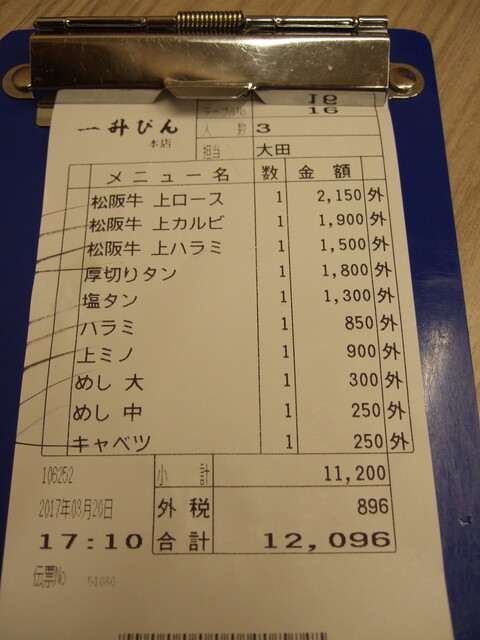 テーブルNo 16
一升びん
本店
人数 3
担当 大田
メニュー名 数 金額
松阪牛 上ロース 1 2,150 外
松阪牛 上カルビ 1 1,900 外
松阪牛 上ハラミ 1 1,500 外
厚切りタン 1 1,800 外
塩タン 1 1,300 外
ハラミ 1 850 外
上ミノ 1 900 外
めし 大 1 300 外
めし 中 1 250 外
キャベツ 1 250 外
106252 小計 11,200
2017年03月20日 外税 896
17:10 合計 12,096
伝票No 51080